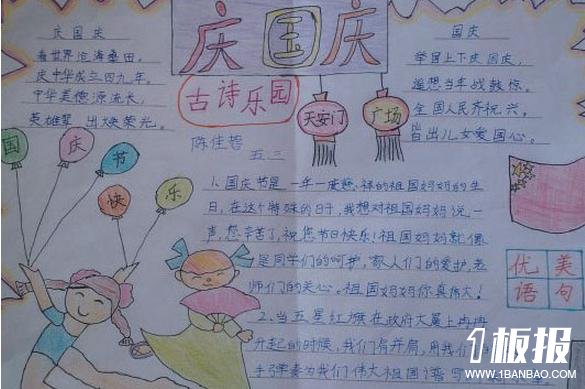 庆国庆
庆国庆
看世界沧海桑田,
庆中华成立四九年。
中华美德源流长,
英雄辈出焕荣光。
国庆
举国上下庆国庆,
遥想当年战鼓惊。
全国人民齐祝兴,
皆出儿女爱国心。
古诗乐园
天安门
广场
陈佳哲
五三
国庆节快乐
1、国庆节是一年一度慈祥的祖国妈妈的生
日,在这个特殊的日子,我想对祖国妈妈说一
声,您辛苦了,祝您节日快乐!祖国妈妈就像
是同学们的呵护,家人们的爱护,老
师们的关心。祖国妈妈你真伟大!
优美
语句
2、当五星红旗在政府大厦上冉冉
升起的时候,我们肩并肩,用我们
手弹奏为我们伟大祖国谱写
1板报
WWW.1BANBAO.COM